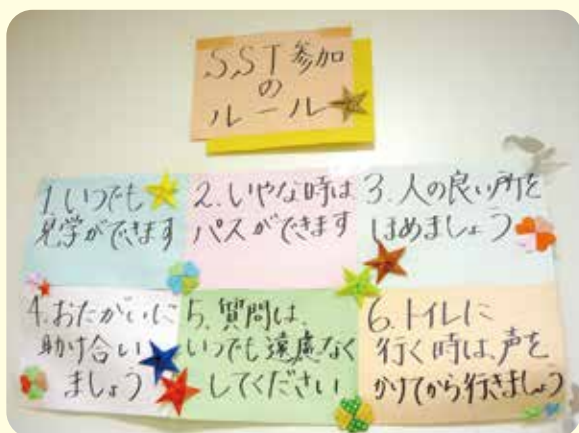 SST参加
の
ルール
1.いつでも
見学ができます
2.いやな時は
パスができます
3.人の良い所を
ほめましょう
4.おたがいに
助け合い
ましょう
5.質問は、
いつでも遠慮なく
してください
6.トイレに
行く時は、声を
かけてから行きましょう